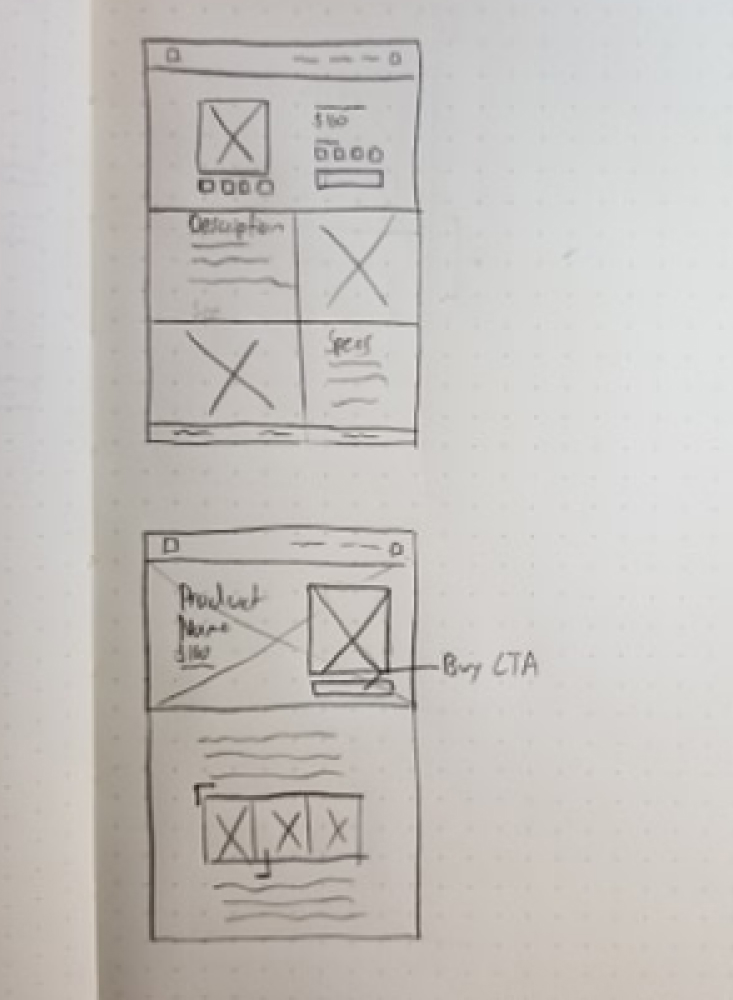 $180
Description
Specs
Product
Name
$180
Buy CTA